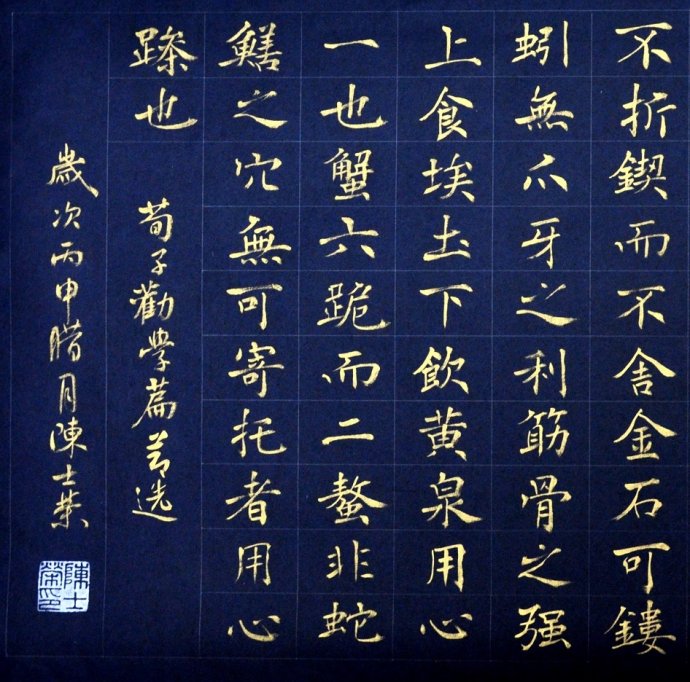 不折鍥而不舍金石可鏤
蚓無爪牙之利筋骨之强
上食埃土下飲黃泉用心
一也蟹六跪而二螯非蛇
鱔之穴無可寄托者用心
躁也
荀子勸學篇节选
歲次丙申腊月陳士榮
陳士榮印